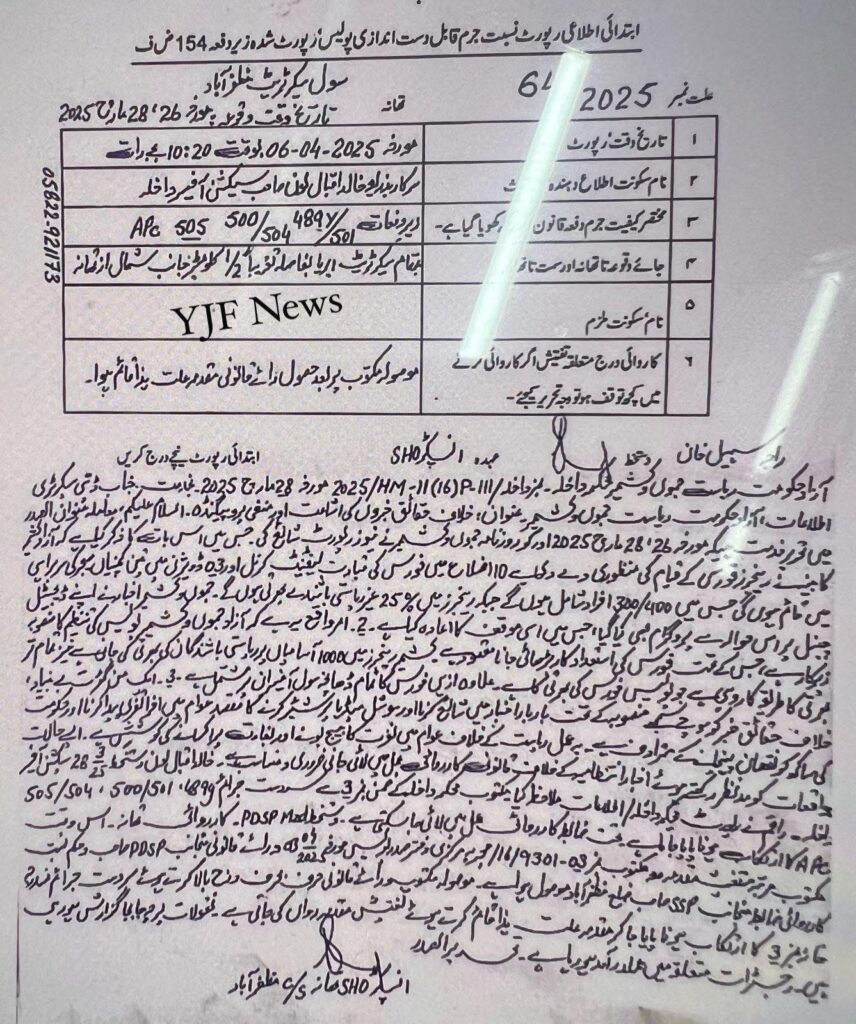 ابتدائی اطلاعی رپورٹ نسبت جرم قابل دست اندازی پولیس رپورٹ شدہ زیر دفعہ 154 ض ف
علت نمبر 2025 64 تھانہ سول سیکرٹریٹ مظفرآباد
تاریخ وقت وقوعہ مورخہ 26، 28 مارچ 2025
۱ تاریخ وقت رپورٹ مورخہ 06-04-2025 بوقت 10:20 بجے رات
۲ نام سکونت اطلاع دہندہ سرکار بذریعہ خالد اقبال لون صاحب سیکشن آفیسر داخلہ
۳ مختصر کیفیت جرم دفعہ قانون کھویا گیا ہے۔ زیر دفعات 489Y 500/501 504 505 APC
۴ جائے وقوعہ تا تھانہ اور سمت تھانہ بمقام سیکرٹریٹ ایریا بفاصلہ تقریباً 1/2 کلومیٹر جانب شمال از تھانہ
۵ نام سکونت ملزم
YJF News
۶ کاروائی درج متعلقہ تفتیش اگر کاروائی کرنے موصولہ مکتوب پر بعد حصول رائے قانونی مقدمہ علت ہذا قائم ہوا۔
میں کچھ توقف ہو تو وجہ تحریر کیجئے۔
05822-921173
راجہ سہیل خان دستخط عہدہ انسپکٹر SHO ابتدائی رپورٹ نیچے درج کریں
آزاد حکومت ریاست جموں و کشمیر محکمہ داخلہ۔ نمبر داخلہ/HM-11(16)P-III/2025 مورخہ 28 مارچ 2025۔ بخدمت جناب ڈپٹی سیکرٹری
اطلاعات، آزاد حکومت ریاست جموں و کشمیر۔ عنوان: خلاف حقائق خبروں کی اشاعت اور منفی پروپیگنڈہ۔ السلام علیکم، معاملہ عنوان الصدر
میں تحریر خدمت ہے کہ مورخہ 26، 28 مارچ 2025 اور روزنامہ جموں و کشمیر نے نیوز رپورٹ شائع کی جس میں اس بات کا ذکر کیا ہے کہ آزاد کشمیر
کابینہ نے رینجرز فورس کے قیام کی منظوری دے دی ہے 10 اضلاع میں فورس کی قیادت لیفٹیننٹ کرنل اور 03 ڈویژن میں
میں قائم ہوں گی جس میں 300/400 افراد شامل ہوں گے جبکہ رینجرز میں 25% غیر ریاستی باشندے بھرتی ہوں گے۔ جموں و کشمیر اخبار نے اپنے ڈیجیٹل
چینل پر اس حوالے سے پروگرام بھی کیا گیا، جس میں اسی موقف کا اعادہ کیا ہے۔ 2۔ امر واقع یہ ہے کہ آزاد جموں و کشمیر پولیس کی تنظیم کا منصوبہ
زیر کار ہے، جس کے تحت فورس کی استعداد کار بڑھائی جانا مقصود ہے کشمیر رینجرز میں 1000 آسامیاں پر ریاستی باشندگان کی بھرتی کی جانی ہے نیز تمام تر
بھرتی کا طریقہ کار وہی ہے جو پولیس فورس کی بھرتی کا ہے۔ علاوہ ازیں فورس کا تمام ڈھانچہ سول آفیسران پر مشتمل ہے۔ 3۔ ایک من گھڑت بے بنیاد،
خلاف حقائق خبر کو سوچے سمجھے منصوبہ کے تحت بار بار اخبار میں شائع کرنا اور سوشل میڈیا پر شیئر کرنے کا مقصد عوام میں افراتفری پیدا کرنا اور حکومت
کی ساکھ کو نقصان پہنچانے کے مترادف ہے۔ یہ عمل ریاست کے خلاف عوام میں نفرت کا بیج بونے اور بغاوت پر اکسانے کی کوشش ہے۔ ایسے حالات
واقعات کو مدنظر رکھتے ہوئے اخبار انتظامیہ کے خلاف قانونی کارروائی عمل میں لائی جانی ضروری و مناسب ہے۔ خالد اقبال لون دستخط 28 سیکشن آفیسر
داخلہ۔ محکمہ داخلہ/اطلاعات ملاحظہ کیا مکتوب محکمہ داخلہ کے ضمن نمبر 3 سے سردست جرائم 489Y، 500/501، 504/505
APC کا ارتکاب ہونا پایا جاتا ہے۔ تحت ضابطہ کارروائی عمل میں لائی جا سکتی ہے۔ دستخط PDSP Mzd۔ کاروائی تھانہ۔ اس وقت
مکتوب نمبر 03-9301/16/ دفتر صدر پولیس مورخہ 2025 رائے قانونی منجانب PDSP صاحب و حکم نسبت
کاروائی ضابطہ منجانب SSP صاحب ضلع مظفرآباد موصول ہوا ہے۔ موصولہ مکتوب، رائے قانونی حرف بحرف درج بالا کرتے ہوئے سردست جرائم مندرجہ
خانہ نمبر 3 کا ارتکاب ہونا پایا جا کر مقدمہ علت ہذا قائم کرتے ہوئے تفتیش مقدمہ رواں کی جاتی ہے۔ نقولات پرچہ جابجا گزارش ہو رہی
ہیں۔ رجسٹرات متعلقہ میں عملدرآمد ہو رہا ہے۔
انسپکٹر SHO تھانہ C/S مظفرآباد